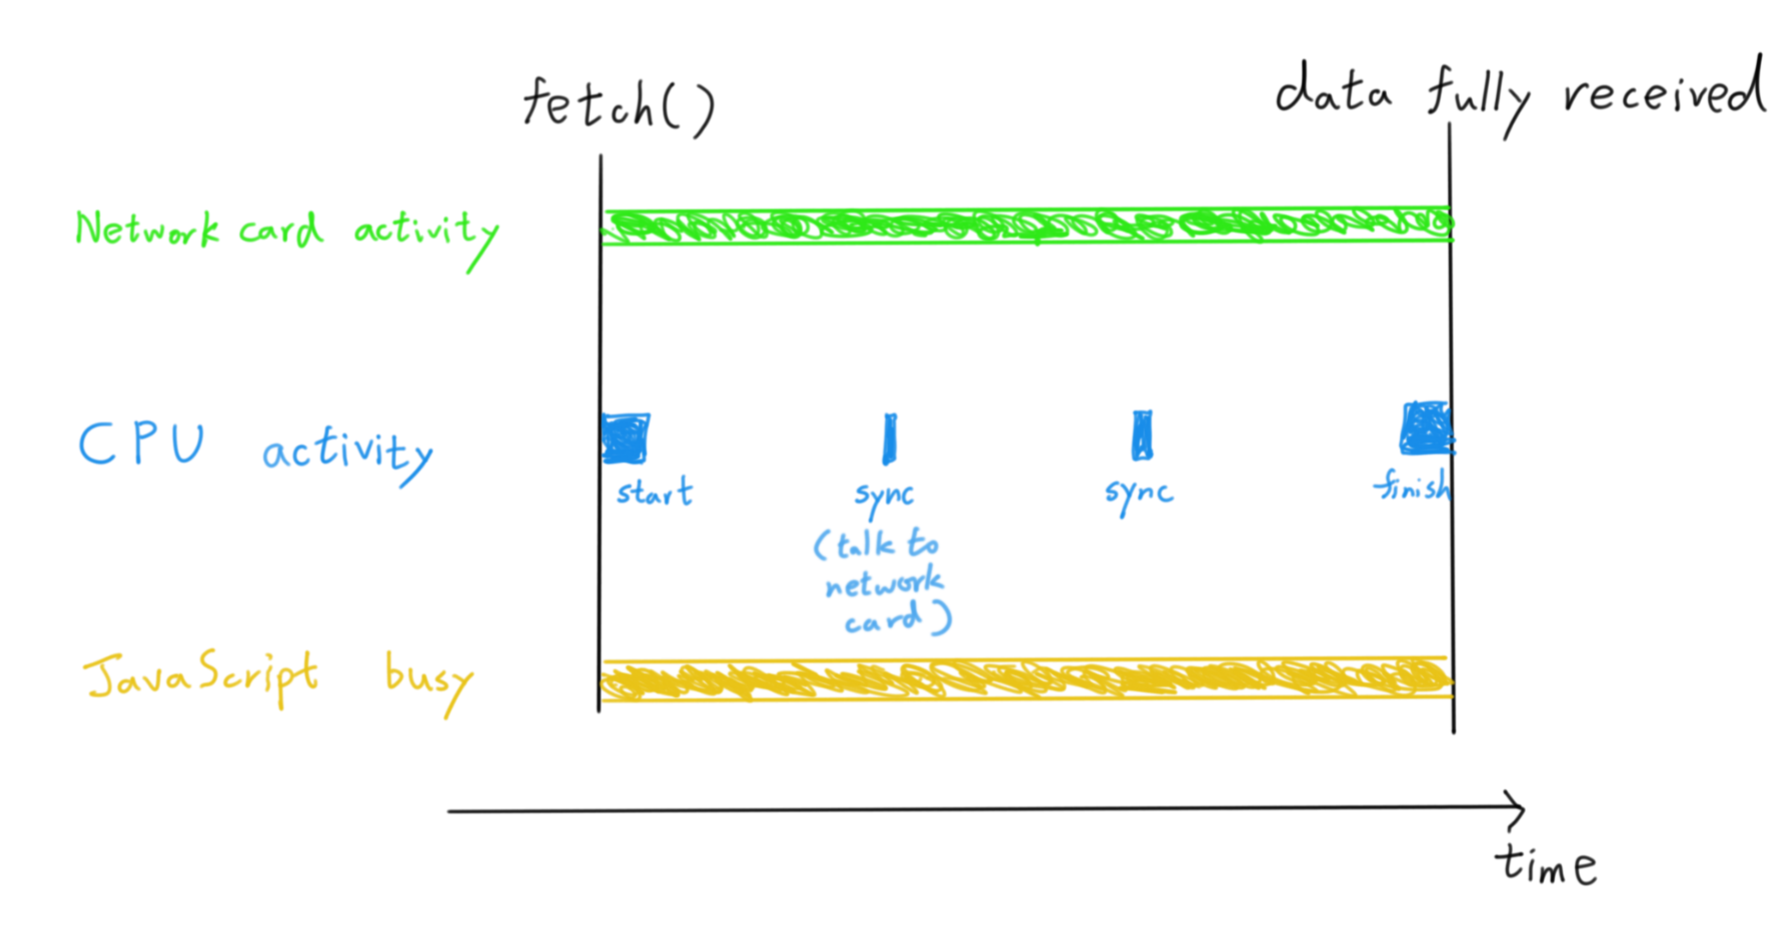 fetch()
data fully received
Network card activity
CPU activity
start
sync
(talk to
network
card)
sync
finish
JavaScript busy
time